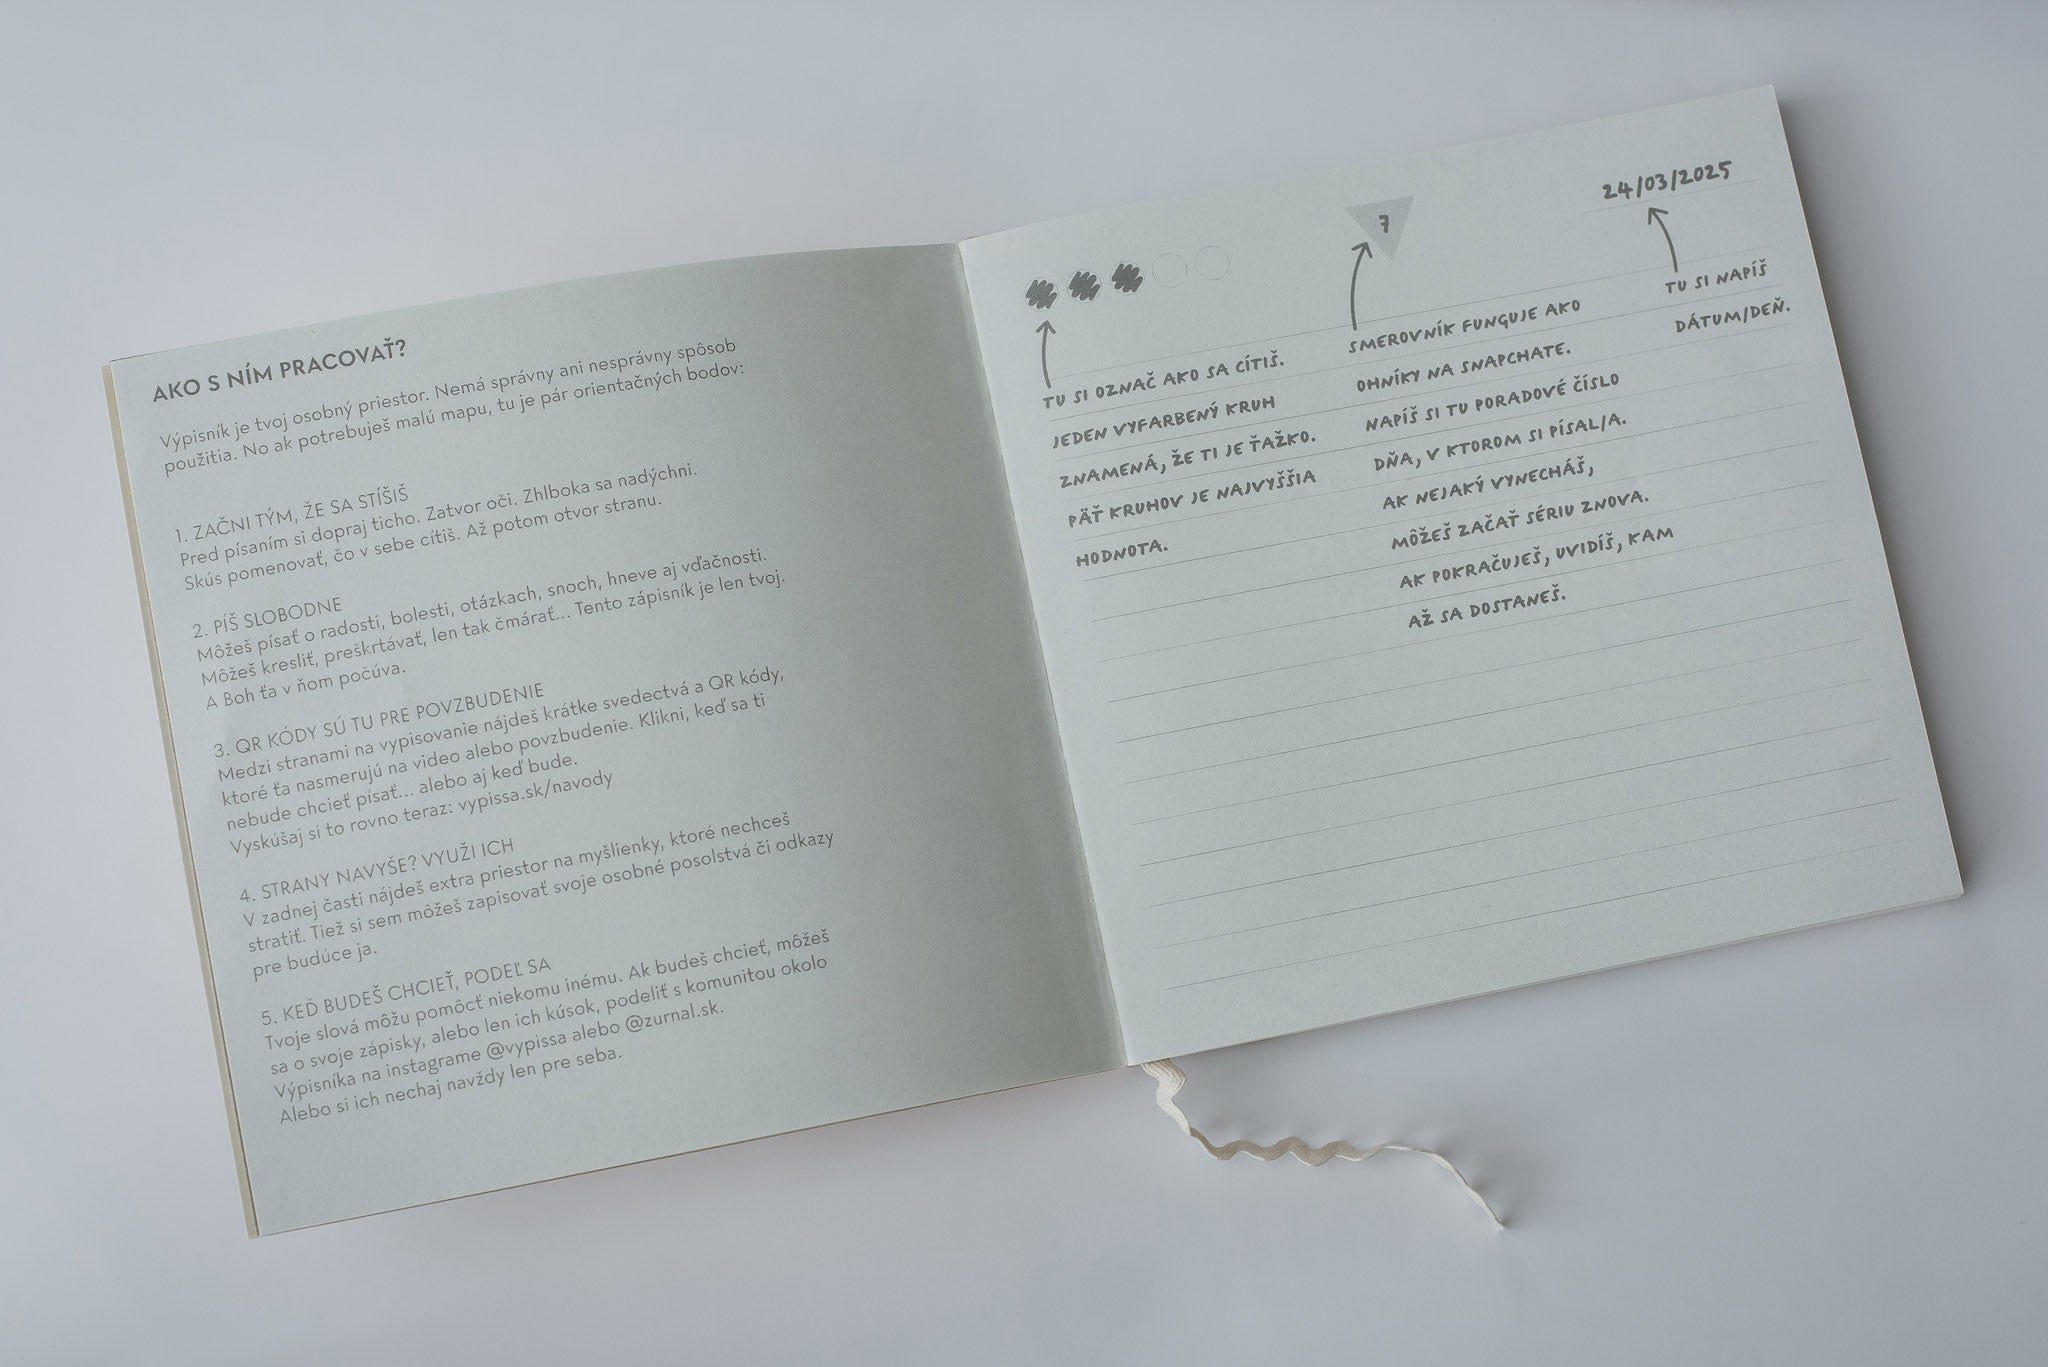 AKO S NÍM PRACOVAŤ?
Výpisník je tvoj osobný priestor. Nemá správny ani nesprávny spôsob
použitia. No ak potrebuješ malú mapu, tu je pár orientačných bodov:
1. ZAČNI TÝM, ŽE SA STÍŠIŠ
Pred písaním si dopraj ticho. Zatvor oči. Zhlboka sa nadýchni.
Skús pomenovať, čo v sebe cítiš. Až potom otvor stranu.
2. PÍŠ SLOBODNE
Môžeš písať o radosti, bolesti, otázkach, snoch, hneve aj vďačnosti.
Môžeš kresliť, preškrtávať, len tak čmárať... Tento zápisník je len tvoj.
A Boh ťa v ňom počúva.
3. QR KÓDY SÚ TU PRE POVZBUDENIE
Medzi stranami na vypisovanie nájdeš krátke svedectvá a QR kódy,
ktoré ťa nasmerujú na video alebo povzbudenie. Klikni, keď sa ti
nebude chcieť písať... alebo aj keď bude.
Vyskúšaj si to rovno teraz: vypissa.sk/navody
4. STRANY NAVYŠE? VYUŽI ICH
V zadnej časti nájdeš extra priestor na myšlienky, ktoré nechceš
stratiť. Tiež si sem môžeš zapisovať svoje osobné posolstvá či odkazy
pre budúce ja.
5. KEĎ BUDEŠ CHCIEŤ, PODEĽ SA
Tvoje slová môžu pomôcť niekomu inému. Ak budeš chcieť, môžeš
sa o svoje zápisky, alebo len ich kúsok, podeliť s komunitou okolo
Výpisníka na instagrame @vypissa alebo @zurnal.sk.
Alebo si ich nechaj navždy len pre seba.
7
24/03/2025
TU SI OZNAČ AKO SA CÍTIŠ.
JEDEN VYFARBENÝ KRUH
ZNAMENÁ, ŽE TI JE ŤAŽKO.
PÄŤ KRUHOV JE NAJVYŠŠIA
HODNOTA.
SMEROVNÍK FUNGUJE AKO
OHNÍKY NA SNAPCHATE.
NAPÍŠ SI TU PORADOVÉ ČÍSLO
DŇA, V KTOROM SI PÍSAL/A.
AK NEJAKÝ VYNECHÁŠ,
MÔŽEŠ ZAČAŤ SÉRIU ZNOVA.
AK POKRAČUJEŠ, UVIDÍŠ, KAM
AŽ SA DOSTANEŠ.
TU SI NAPÍŠ
DÁTUM/DEŇ.